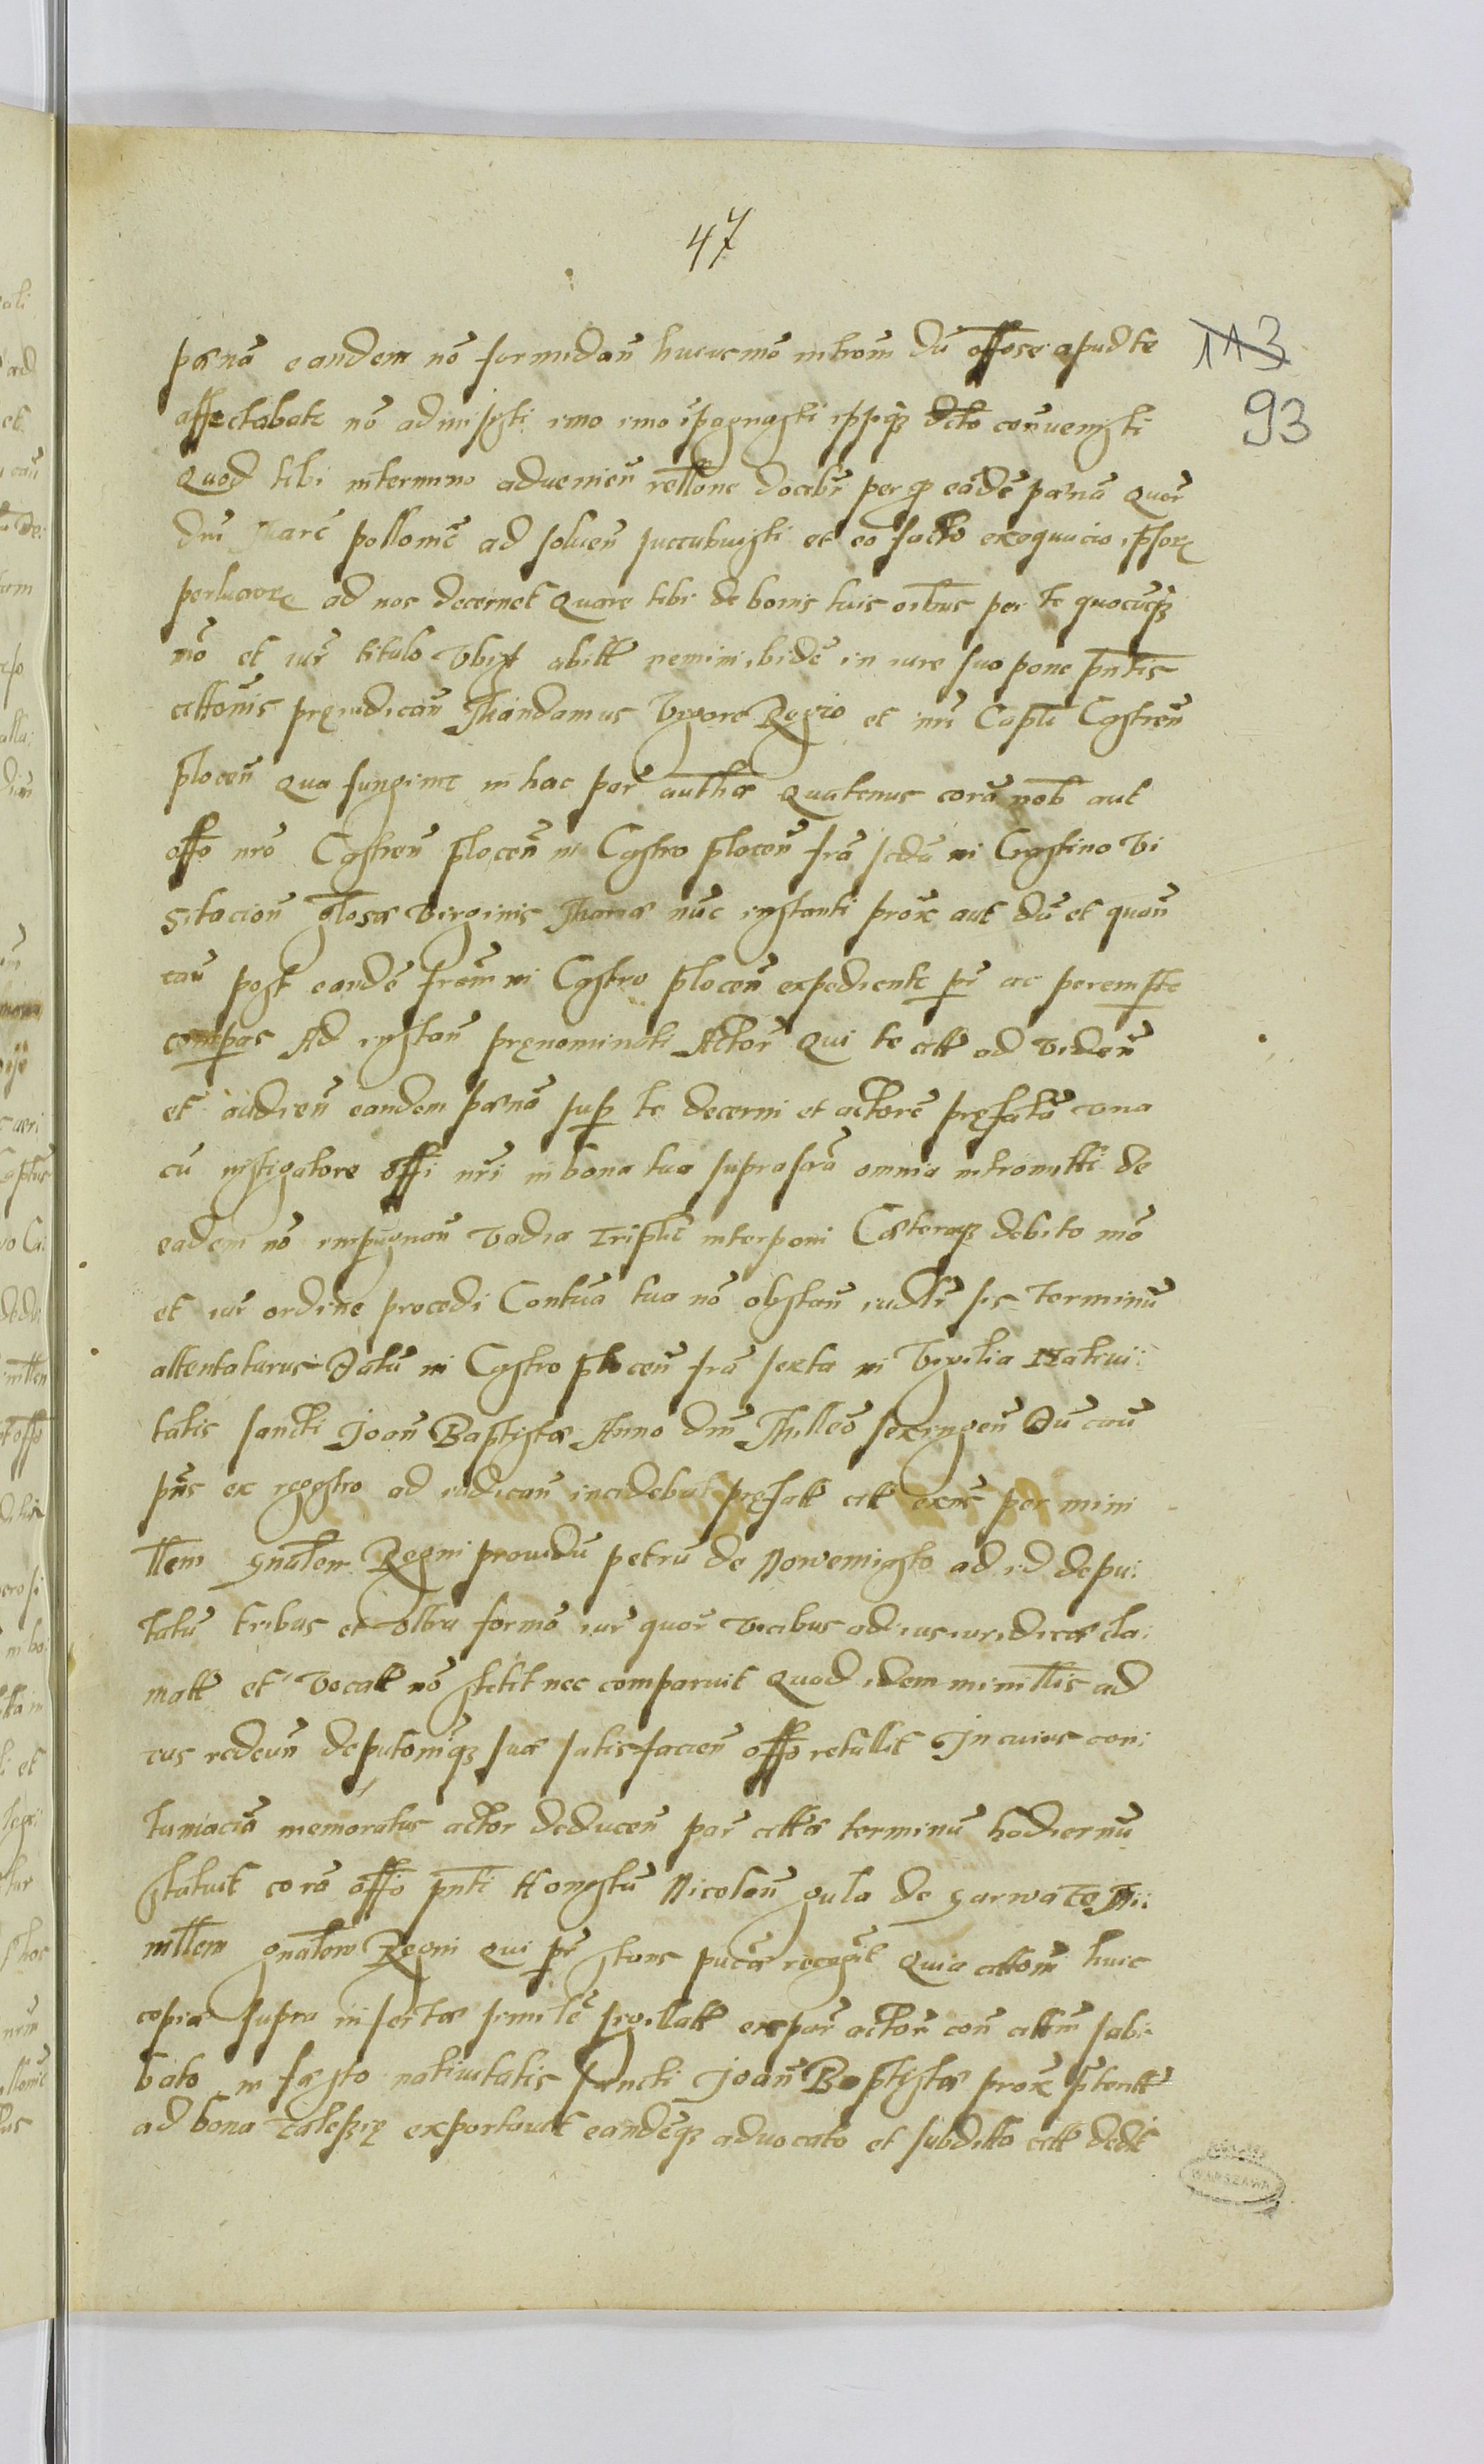 47
113
93
pœnã eandem nõ formidañ huiusmõ introm̃ dũ offose apud te
affectabate nõ admisisti imo imo ĩpagnasti ippiqȝ dcto convenisti
Quod tibi in termino advenieñ rellone docebr̃ per eãdẽ pœnã quar̃
dni Marc̃ pollonic̃ ad solueñ succubuisti et eo facto exequucio ipsorȝ
ad nos decernet Quare tibi de bonis tuis oĩbus per te quocũqȝ
mõ et iur̃ titulo Vbiqȝ abitt nemini ibidẽ in iure suo pone pñtis
cittonis pręiudicañ Mandamus Vigore Regio et nri Capti Castreñ
ploceñ qua fungimr̃ in hac par̃ authæ Quatenus corã nob̃ aut
offo nrõ Castreñ ploceñ in Castro ploceñ frã in Crastino Vi
sitacioñ glosæ Virginis Mariæ nũc instanti prox̃ aut dũ et quañ
cau post eandẽ frãm in Castro ploceñ expediente pr̃ ac perempte
compas Ad instañ pręnominati Actor̃ Qui te citt ad videñ
et audieñ eandem pœnã sup te decerni et actorẽ pręfatũ una
cũ instigatore offi nri in bona tua suprascrã omnia intromitti de
eadem nõ impugnañ vadia Triplic̃ interponi Cæteraqȝ debito mõ
et iur̃ ordine procedi Contũa tua nõ obstañ iudlr̃ sis Terminũ
attentaturus Datũ in Castro ploceñ frã sexta in Vigilia Nativi:
tatis sancti Joañ Baptistæ Anno dni Milleõ sexingeñ Dũ cau
pñs ex regestro ad iudicañ incidebat pręfatt citt exñs per mini
llem gnalem Regni providũ petrũ de Nowemiasto ad id depu:
tatũ tribus et ultra formã iur̃ quar̃ vicibus ad ius iuridicæ cla:
matt et vocatt nõ stetit nec comparuit Quod idem minillis ad
ius redeuñ deputoniqȝ suæ satisfacieñ offo retullit In cuius con:
tumaciã memoratus actor deducen par̃ cittæ terminũ hodiernũ
statuit corã offo pñti Honestũ Nicolaũ gula de garwacz Mi:
nillem gnalem Regni Qui pr̃ stans recogit Quia cittom̃ huic
copiæ supra insertæ similẽ sigillatt ex par̃ actor̃ coñ citt̃ sab:
bato in fæsto nativitatis sancti Joañ Baptistæ prox̃ pteritt
ad bona Zaleszię exportavit eandẽqȝ advocato et subditto citt dedit
WARSZAWA